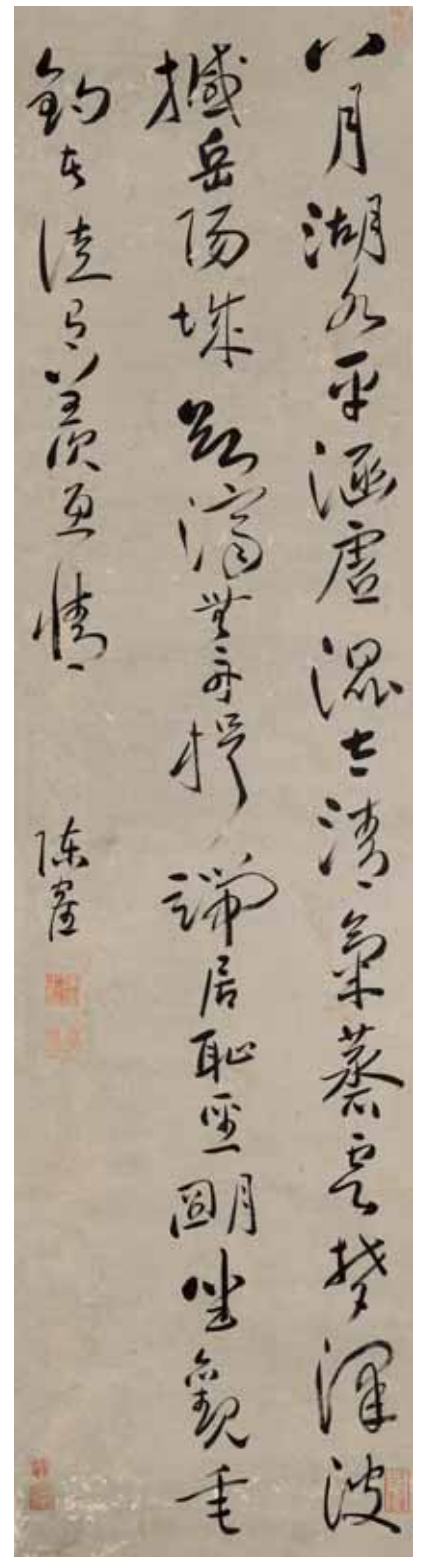 八月湖水平涵虛混太清氣蒸雲夢澤波
撼岳陽城欲濟無舟楫端居恥聖朙坐觀垂
釣者徒有羨魚情
陳